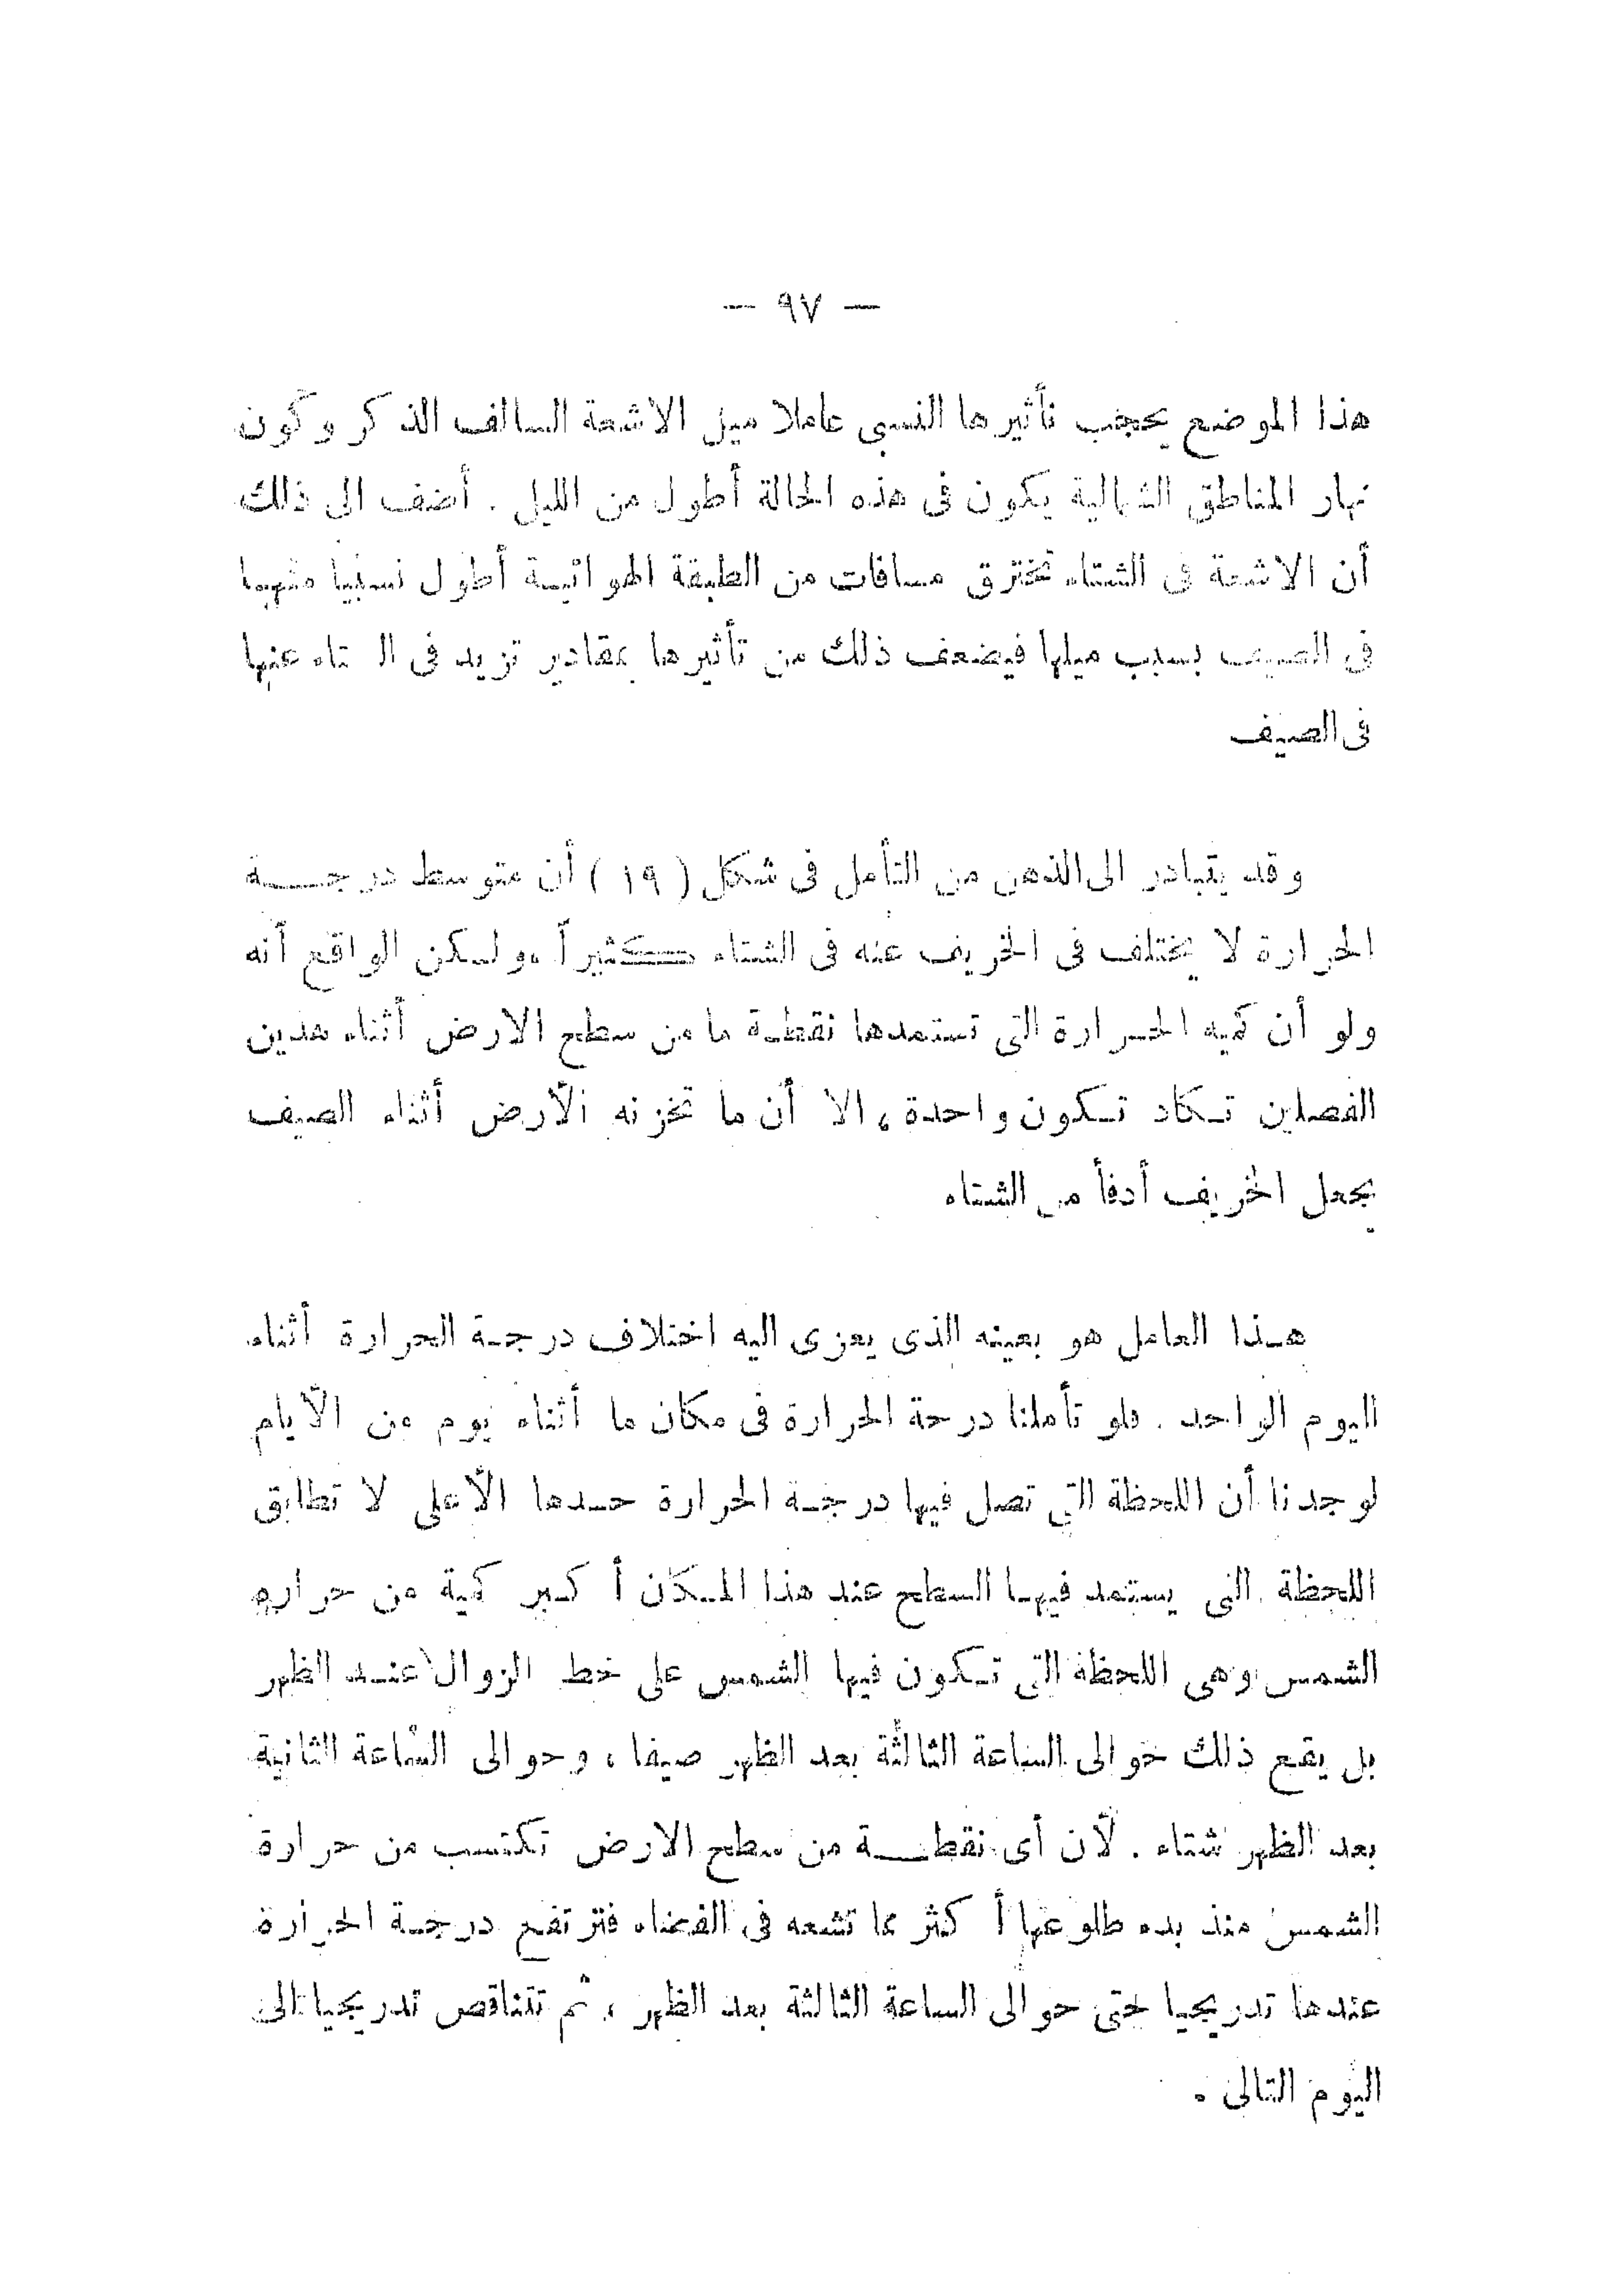 — ٩٧ —
هذا الموضع يحجب تأثيرها النسبى عاملا ميل الاشعة السالف الذكر وكون
نهار المناطق الشمالية يكون فى هذه الحالة أطول من الليل . أضف الى ذلك
أن الاشعة فى الشتاء تخترق مسافات من الطبقة الهوائيـة أطول نسبيا منهما
فى الصيف بسبب ميلها فيضعف ذلك من تأثيرها بمقادير تزيد فى الشتاء عنها
فى الصيف
وقد يتبادر الى الذهن من التأمل فى شكل ( ١٩ ) أن متوسط درجـــة
الحرارة لا يختلف فى الخريف عنه فى الشتاء كثيراً ،ولكن الواقع أنه
ولو أن كميه الحـرارة التى تستمدها نقطـة ما من سطح الارض أثناء هدين
الفصلين تـكاد تـكون واحدة ، الا أن ما تخزنه الأرض أثناء الصيف
يجعل الخريف أدفأ من الشتاء
هـذا العامل هو بعينه الذى يعزى اليه اختلاف درجـة الحرارة أثناء
اليوم الواحد . فلو تأملنا درجة الحرارة فى مكان ما أثناء يوم من الأيام
لوجدنا أن اللحظة التى تصل فيها درجـة الحرارة حـدها الأعلى لا تطابق
اللحظة التى يستمد فيهـا السطح عند هذا المـكان أكـبر كمية من حراره
الشمس وهى اللحظة التى تـكون فيها الشمس على خط الزوال عنـد الظهر
بل يقع ذلك حوالى الساعة الثالثة بعد الظهر صيفا ، وحوالى الساعة الثانية
بعد الظهر شتاء . لأن أى نقطـــة من سطح الارض تكتسب من حرارة
الشمس منذ بدء طلوعها أكثر مما تشعه فى الفضاء فترتفع درجـة الحرارة
عندها تدريجيا حتى حوالى الساعة الثالثة بعد الظهر ، ثم تتناقص تدريجيا الى
اليوم التالى .